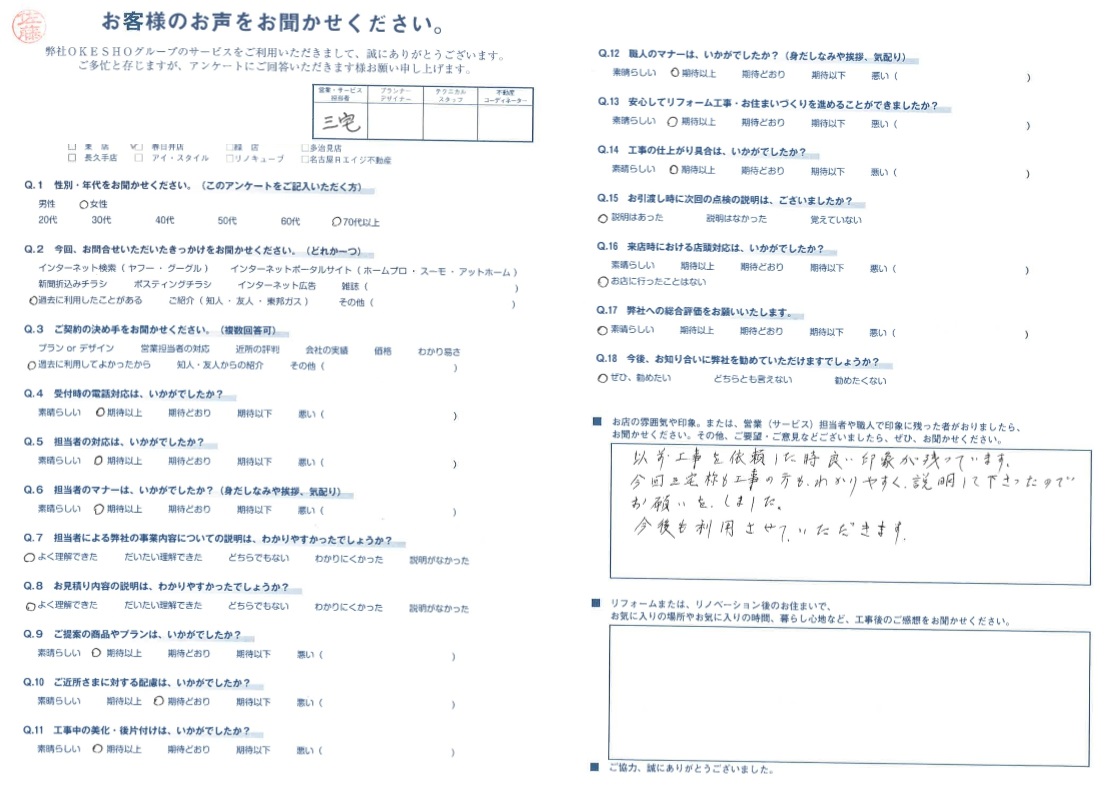 佐藤
お客様のお声をお聞かせください。
弊社OKESHOグループのサービスをご利用いただきまして、誠にありがとうございます。
ご多忙と存じますが、アンケートにご回答いただきます様お願い申し上げます。
営業・サービス担当者 プランナーデザイナー テクニカルスタッフ 不動産コーディネーター
三宅
□ 東 店 ☑ 春日井店 □ 緑 店 □ 多治見店
□ 長久手店 □ アイ・スタイル □リノキューブ □名古屋Rエイジ不動産
Q.1 性別・年代をお聞かせください。（このアンケートをご記入いただく方）
男性 ○女性
20代 30代 40代 50代 60代 ○70代以上
Q.2 今回、お問合せいただいたきっかけをお聞かせください。（どれか一つ）
インターネット検索（ ヤフー ・ グーグル ） インターネットポータルサイト（ ホームプロ ・ スーモ ・ アットホーム ）
新聞折込みチラシ ポスティングチラシ インターネット広告 雑誌（ ）
○過去に利用したことがある ご紹介（ 知人 ・ 友人 ・ 東邦ガス ） その他（ ）
Q.3 ご契約の決め手をお聞かせください。（複数回答可）
プラン or デザイン 営業担当者の対応 近所の評判 会社の実績 価格 わかり易さ
○過去に利用してよかったから 知人・友人からの紹介 その他（ ）
Q.4 受付時の電話対応は、いかがでしたか？
素晴らしい ○期待以上 期待どおり 期待以下 悪い（ ）
Q.5 担当者の対応は、いかがでしたか？
素晴らしい ○期待以上 期待どおり 期待以下 悪い（ ）
Q.6 担当者のマナーは、いかがでしたか？（身だしなみや挨拶、気配り）
素晴らしい ○期待以上 期待どおり 期待以下 悪い（ ）
Q.7 担当者による弊社の事業内容についての説明は、わかりやすかったでしょうか？
○よく理解できた だいたい理解できた どちらでもない わかりにくかった 説明がなかった
Q.8 お見積り内容の説明は、わかりやすかったでしょうか？
○よく理解できた だいたい理解できた どちらでもない わかりにくかった 説明がなかった
Q.9 ご提案の商品やプランは、いかがでしたか？
素晴らしい ○期待以上 期待どおり 期待以下 悪い（ ）
Q.10 ご近所さまに対する配慮は、いかがでしたか？
素晴らしい 期待以上 ○期待どおり 期待以下 悪い（ ）
Q.11 工事中の美化・後片付けは、いかがでしたか？
素晴らしい ○期待以上 期待どおり 期待以下 悪い（ ）
Q.12 職人のマナーは、いかがでしたか？（身だしなみや挨拶、気配り）
素晴らしい ○期待以上 期待どおり 期待以下 悪い（ ）
Q.13 安心してリフォーム工事・お住まいづくりを進めることができましたか？
素晴らしい ○期待以上 期待どおり 期待以下 悪い（ ）
Q.14 工事の仕上がり具合は、いかがでしたか？
素晴らしい ○期待以上 期待どおり 期待以下 悪い（ ）
Q.15 お引渡し時に次回の点検の説明は、ございましたか？
○説明はあった 説明はなかった 覚えていない
Q.16 来店時における店頭対応は、いかがでしたか？
素晴らしい 期待以上 期待どおり 期待以下 悪い（ ）
○お店に行ったことはない
Q.17 弊社への総合評価をお願いいたします。
○素晴らしい 期待以上 期待どおり 期待以下 悪い（ ）
Q.18 今後、お知り合いに弊社を勧めていただけますでしょうか？
○ぜひ、勧めたい どちらとも言えない 勧めたくない
■ お店の雰囲気や印象。または、営業（サービス）担当者や職人で印象に残った者がおりましたら、
お聞かせください。その他、ご要望・ご意見などございましたら、ぜひ、お聞かせください。
以前工事を依頼した時良い印象が残っています。
今回三宅様も工事の方も、わかりやすく、説明して下さったので
お願いをしました。
今後も利用させていただきます。
■ リフォームまたは、リノベーション後のお住まいで、
お気に入りの場所やお気に入りの時間、暮らし心地など、工事後のご感想をお聞かせください。
■ ご協力、誠にありがとうございました。